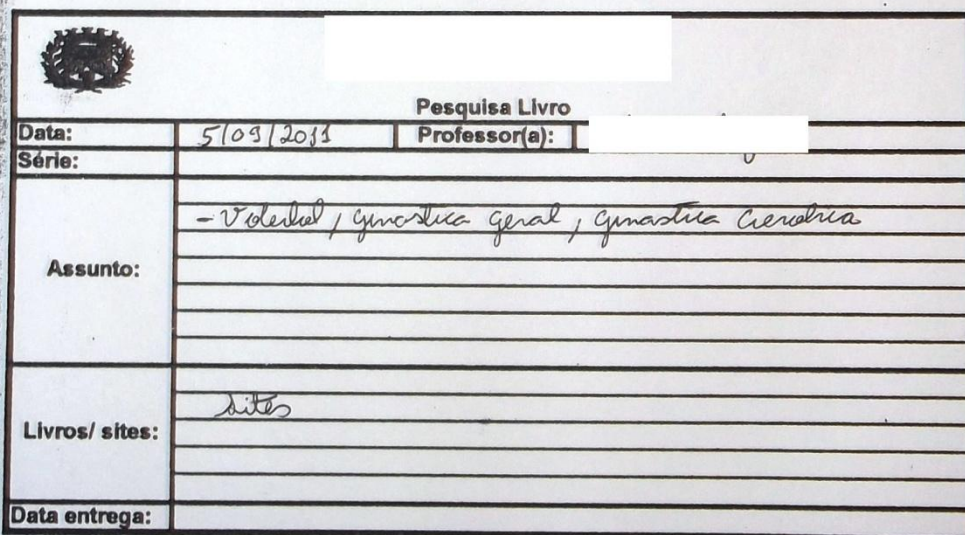 Pesquisa Livro
Data: 5/09/2011 Professor(a):
Série:
Assunto: - Voleibol, ginastica geral, ginastica
Livros/ sites: sites
Data entrega: